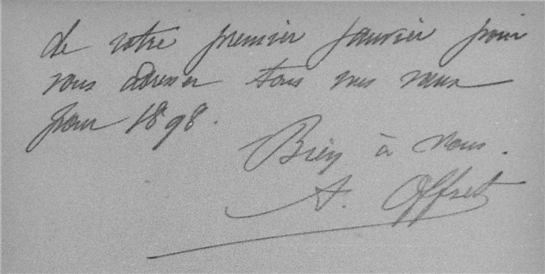 de votre premier Janvier pour
vous adresser tous mes vœux
pour 1898.
Bien à vous.
A. Offret